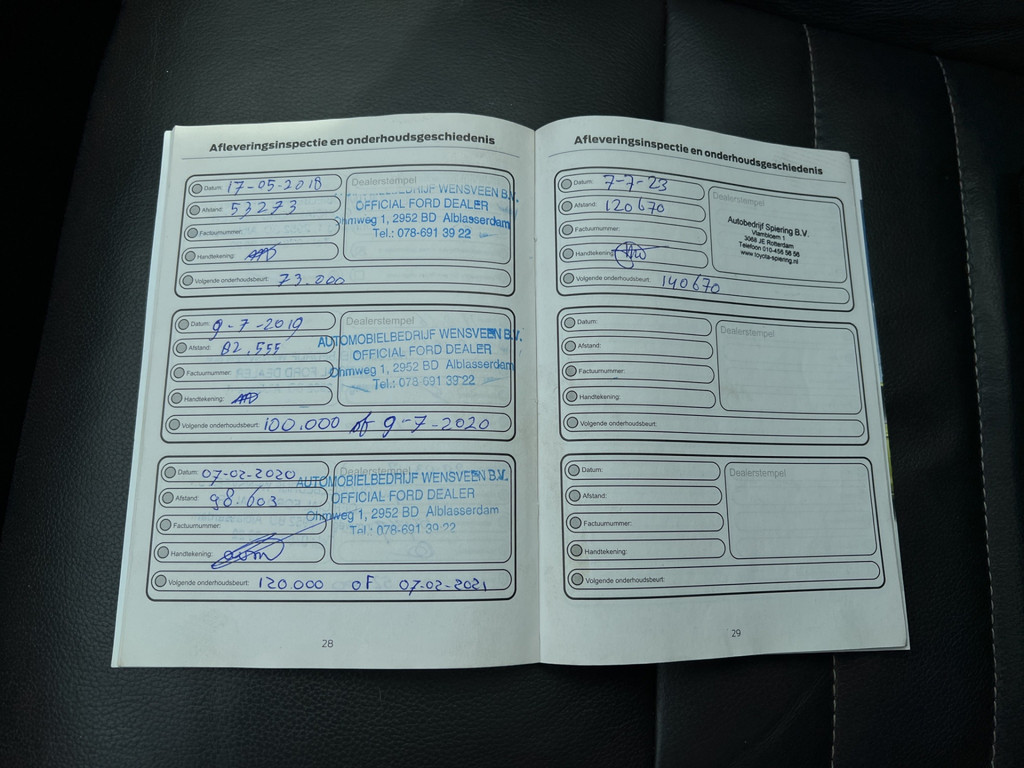 Afleveringsinspectie en onderhoudsgeschiedenis
Datum: 17-05-2018
Afstand: 53273
Factuurnummer:
Handtekening:
Volgende onderhoudsbeurt: 73.000
Dealerstempel
BEDRIJF WENSVEEN B.V.
OFFICIAL FORD DEALER
Ohmweg 1, 2952 BD Alblasserdam
Tel.: 078-691 39 22
Datum: 9-7-2019
Afstand: 82.555
Factuurnummer:
Handtekening:
Volgende onderhoudsbeurt: 100.000 of 9-7-2020
Dealerstempel
AUTOMOBIELBEDRIJF WENSVEEN B.V.
OFFICIAL FORD DEALER
Ohmweg 1, 2952 BD Alblasserdam
Tel.: 078-691 39 22
Datum: 07-02-2020
Afstand: 98.603
Factuurnummer:
Handtekening:
Volgende onderhoudsbeurt: 120.000 OF 07-02-2021
Dealerstempel
AUTOMOBIELBEDRIJF WENSVEEN B.V.
OFFICIAL FORD DEALER
Ohmweg 1, 2952 BD Alblasserdam
Tel.: 078-691 39 22
28
Afleveringsinspectie en onderhoudsgeschiedenis
Datum: 7-7-23
Afstand: 120670
Factuurnummer:
Handtekening:
Volgende onderhoudsbeurt: 140670
Dealerstempel
Autobedrijf Spiering B.V.
Vlambloem 1
3068 JE Rotterdam
Telefoon 010-456 56 56
www.toyota-spiering.nl
Datum:
Afstand:
Factuurnummer:
Handtekening:
Volgende onderhoudsbeurt:
Dealerstempel
Datum:
Afstand:
Factuurnummer:
Handtekening:
Volgende onderhoudsbeurt:
Dealerstempel
29